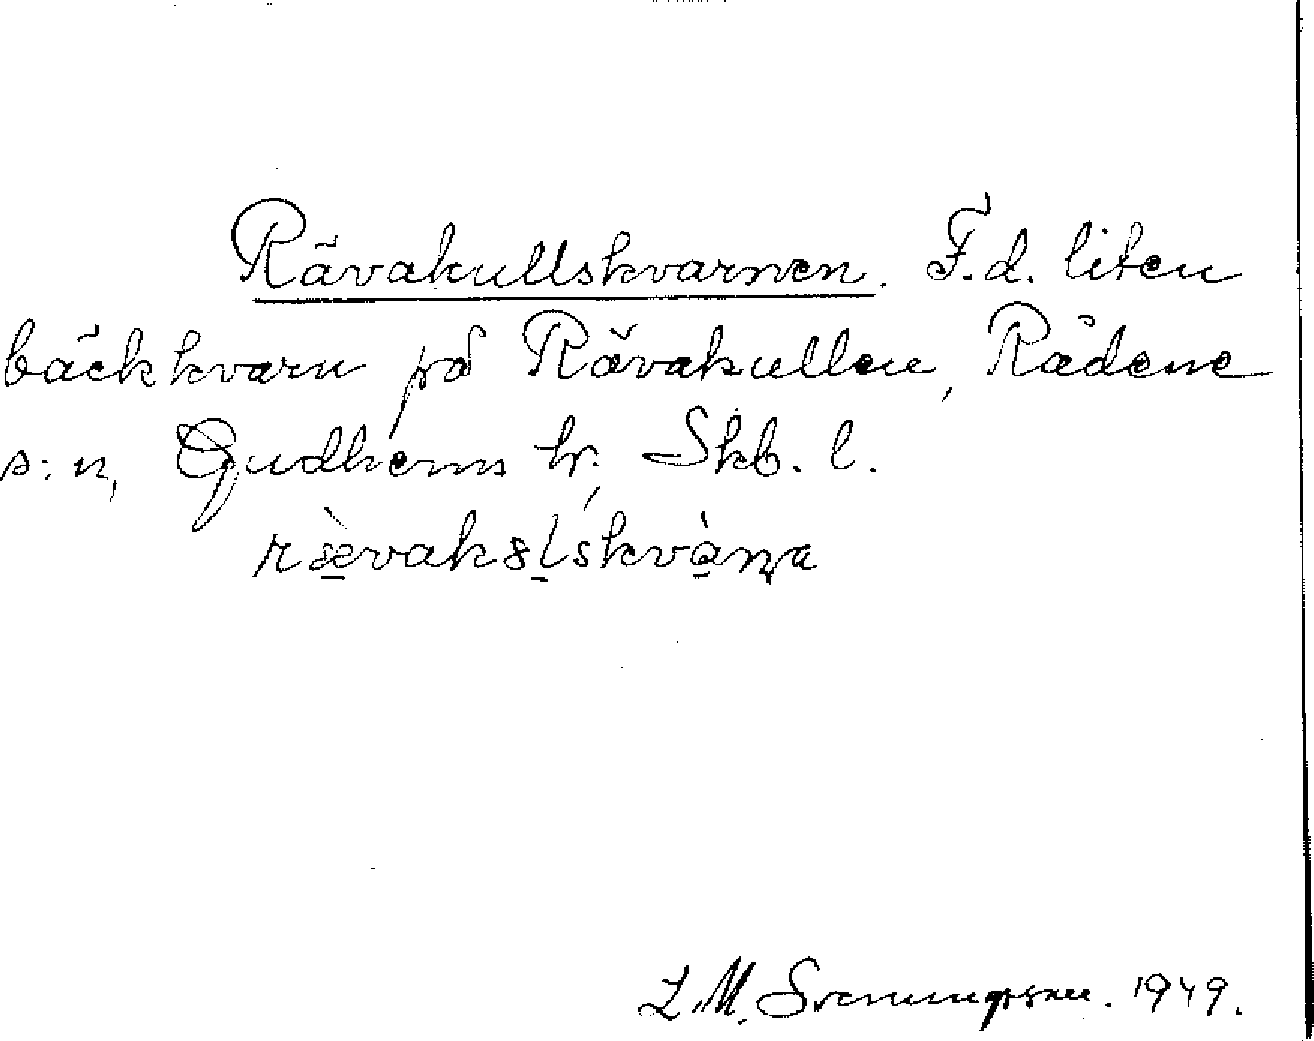 Rävakullskvarnen. F.d. liten
bäckkvarn på Rävakullen, Rådene
s:n, Gudhems hr, Skb. l.
ræ̀vakslskvàɳa
L. M. Svenungsson. 1949.